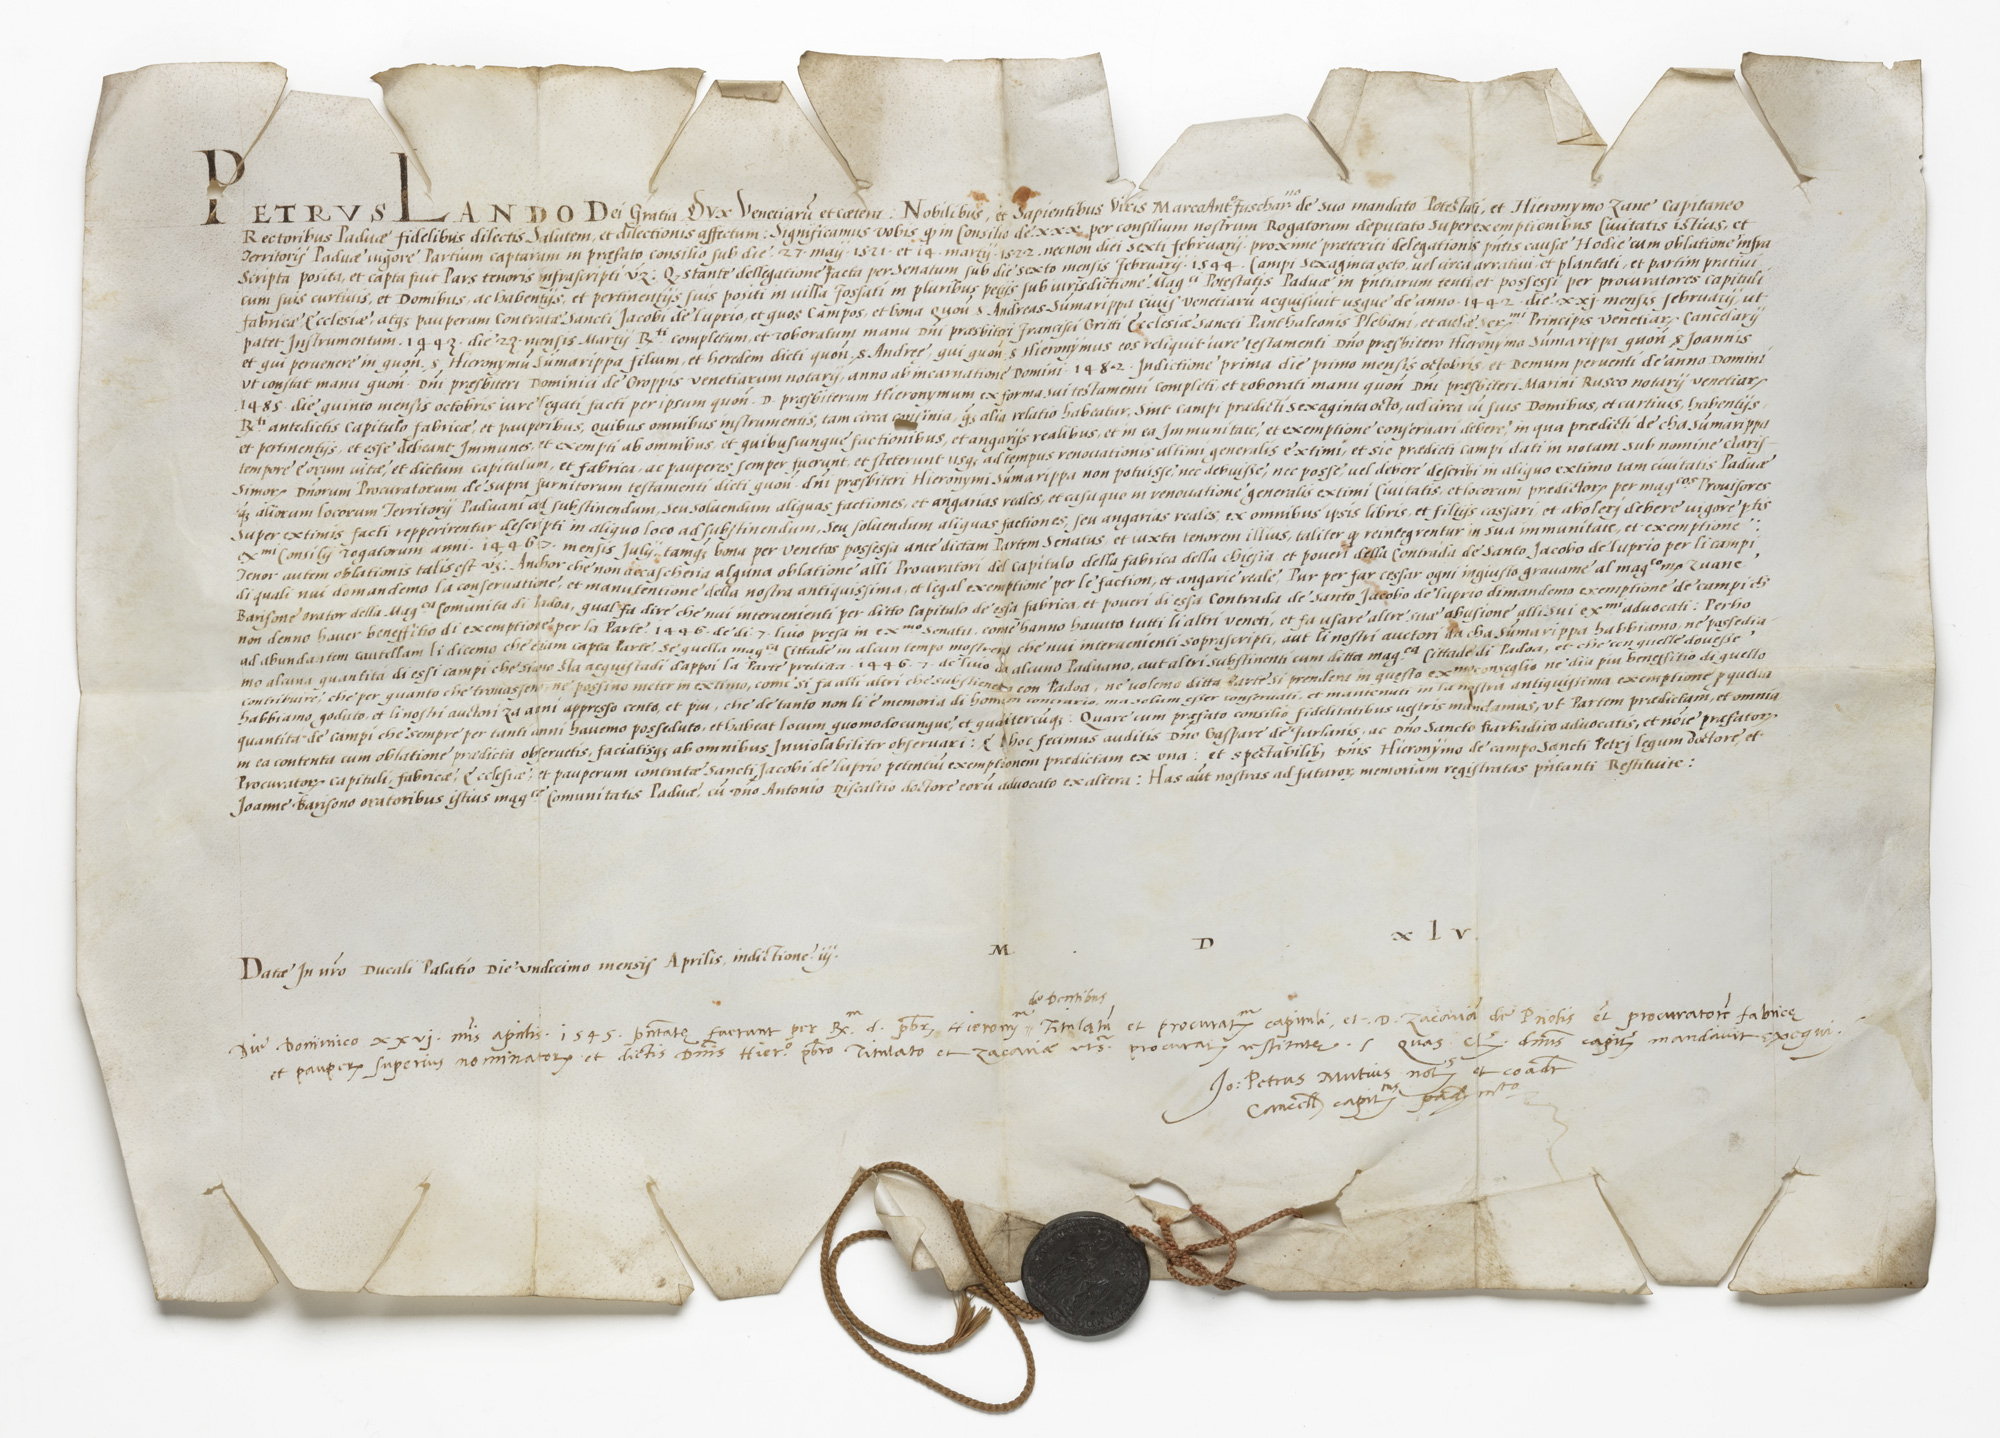 PETRVS LANDO Dei Gratia DVX Venetiarũ et cætera: Nobilibus, et Sapientibus Viris Marco Antº fuschar.no de suo mandato Potestati, et Hieronymo Zane Capitaneo
Rectoribus Paduæ fidelibus dilectis Salutem, et dilectionis affectum: Significamus vobis in Consilio de xxx per consilium nostrum Rogatorum deputato Super exemptionibus Civitatis istius, et
Territorij Paduæ vigore Partium captarum in præfato consilio sub die 27 maij 1521 et 14 martij 1522 necnon diei sexti februarij proxime præteriti delegationis pñtis causæ Hodie cum oblatione infra
Scripta posita, et capta fuit Pars tenoris infrascripti vz: Q stante dellegatione facta per Senatum sub die Sexto mensis februarij 1544. Campi Sexaginta octo, vel circa arratiui, et plantati, et partim pratiui
cum suis curtiuis, et Domibus, ac habentijs, et pertinentijs suis positi in villa fossati in pluribus pegijs sub iurisdictione Mag.ci Potestatis Paduæ in pñtiarum tenti, et possessi per procuratores capituli
fabricæ Ecclesiæ, atq; pauperum Contratæ Sancti Jacobi de luprio, et quos Campos, et bona quon s Andreas Sumarippa ciuis Venetiarũ acquisiuit usque de anno 1442 die xxj mensis februarij, ut
patet Instrumentum 1443 die 23 mensis Martij completum, et roboratum manu Dñi præsbiteri francisci Gritti Ecclesiæ Sancti Panthaleonis Plebani, et aulæ Ser.mi Principis Venetiar Cancelarij
et qui peruenere in quon. s Hieronymũ Sumarippa filium, et heredem dicti quon. s Andreæ, qui quon s Hieronymus eos reliquit iure testamenti Dño præsbitero Hieronymo Sumarippa quon s Joannis
vt constat manu quon Dñi præsbiteri Dominici de Groppis Venetiarum notarij, anno ab incarnatione Domini 1482 Indictione prima die primo mensis octobris, et Demum peruenti de anno Domini
1485 die quinto mensis octobris iure legati facti per ipsum quon D. præsbiterum Hieronymum ex forma sui testamenti completi, et roborati manu quon Dñi præsbiteri Marini Rusco notarij Venetiar
antedictis Capitulo fabricæ, et pauperibus, quibus omnibus instrumentis, tam circa confinia, q; alia relatio habeatur, Sint campi prædicti sexaginta octo, vel circa cũ suis Domibus, et curtiuis, habentijs
et pertinentijs, et esse debeant Immunes, et exempti ab omnibus, et quibuscunque factionibus, et angarijs realibus, et in ea Immunitate, et exemptione conseruari debere, in qua prædicti de cha Sumarippa
tempore eorum vitæ, et dictum capitulum, et fabrica, ac pauperes semper fuerunt, et steterunt usq; ad tempus renouationis ultimi generalis extimi, et sic prædicti campi dati in notam sub nomine Claris
Simor Dñorum Procuratorum de supra furnitorum testamenti dicti quon dñi præsbiteri Hieronymi Sumarippa non potuisse, nec debuisse, nec posse, vel debere describi in aliquo extimo tam ciuitatis Paduæ
q; aliorum locorum Territorij Paduani ad substinendum, seu soluendum aliquas factiones, et angarias reales, et casu quo in renouatione generalis extimi Ciuitatis, et locorum prædictor per mag.cos Prouisores
super extimis facti repperirentur descripti in aliquo loco ad substinendum, seu soluendum aliquas factiones, seu angarias realis, ex omnibus ipsis libris, et filtijs cassari, et aboleri debere vigore ptis
ex.mi Consilij rogatorum anni 1446 7 mensis Julij, tamq; bona per Venetos possessa ante dictam Partem Senatus, et iuxta tenorem illius, taliter q reintegrentur in sua immunitate, et exemptione:
Tenor autem oblationis talis est vz: Anchor che non accascheria alguna oblatione alli Procuratori del Capitulo della fabrica della chiesia, et poueri della Contrada de Santo Jacobo de luprio per li campi
di quali nui domandemo la conseruatione, et manutentione della nostra antiquissima, et legal exemptione per le faction, et angarie reale, Pur per far cessar ogni ingiusto grauame al mag.co mp Zuane
Barisone orator della Mag.ca Comunita di Padoa, qual fa dire che nui interuenienti per ditto Capitulo de essa fabrica, et poueri di essa Contrada de Santo Jacobo de luprio dimandemo exemptione de campi ch
non denno hauer beneffitio di exemptione per la Parte 1446 de di 7 luio presa in ex.mo Senatu come hanno hauuto tutti li altri veneti, et fa usare altre sue abusione alli sui ex.mi aduocati: Perho
ad abundantem cautellam li dicemo che etiam capta Parte. Se quella mag.ca Cittade in alcun tempo mostrera che nui interuenienti soprascripti, aut li nostri auctori da cha Sumarippa habbiamo, ne possedia
mo alcuna quantita di essi campi che siano sta acquistadi dappoi la Parte predita 1446 7 de luio da alcuno Paduano, aut altri substinenti cum ditta mag.ca Cittade di Padoa, et che con quelle douesse
contribuire, che per quanto che trouassero ne possino meter in extimo, come si fa alli altri che substieneno con Padoa, ne volemo ditta Parte si prendera in questo ex.mo conseglio ne dia piu beneffitio di quello
habbiamo goduto, et li nostri auctori za anni appresso cento, et piu, che de tanto non li è memoria di homeni contrario, ma solum esser conseruati, et mantenuti in la nostra antiquissima exemptione p quella
quantita de campi che sempre per tanti anni hauemo posseduto, et habeat locum quomodocunque, et qualitercũq;: Quare cum præfato consilio fidelitatibus vestris mandamus, vt Partem prædictam, et omnia
in ea contenta cum oblatione prædicta obseruetis, faciatisq; ab omnibus Inuiolabiliter obseruari: Et hoc fecimus auditis Dño Gaspare de furlanis, ac Dño Sancto barbadico aduocatis, et nõie præfator
Procurator capituli, fabricæ, Ecclesiæ, et pauperum contratæ Sancti Jacobi de luprio petentiũ exemptionem prædictam ex vna: et spectabilib; Dñis Hieronymo de campo Sancti Petrj legum doctore, et
Joanne Barisono oratoribus istius mag.cæ Comunitatis Paduæ, cũ Dño Antonio Discaltio doctore eorũ aduocato ex altera: Has aũt nostras ad futuror memoriam registratas pñtanti Restituite:
Datæ In nrõ Ducali Palatio Die vndecimo mensis Aprilis, indictione iij. M D XLV.
de Dentibus
Die Dominico xxvj mis aprilis 1545 pñtate fuerunt per R.m d. pbr Hieronym Titulatũ et procurat.m capituli, et D. Zacaria de Priolis et procuratore fabrice
et pauper superius nominator et dictis Dñis Hier.o pbro Titulato et Zacariæ procurat restitute. Quas dnus capit mandauit exequi.
Jo: Petrus Mutius not.s et coadr
Cancell capit.tus pad m.to